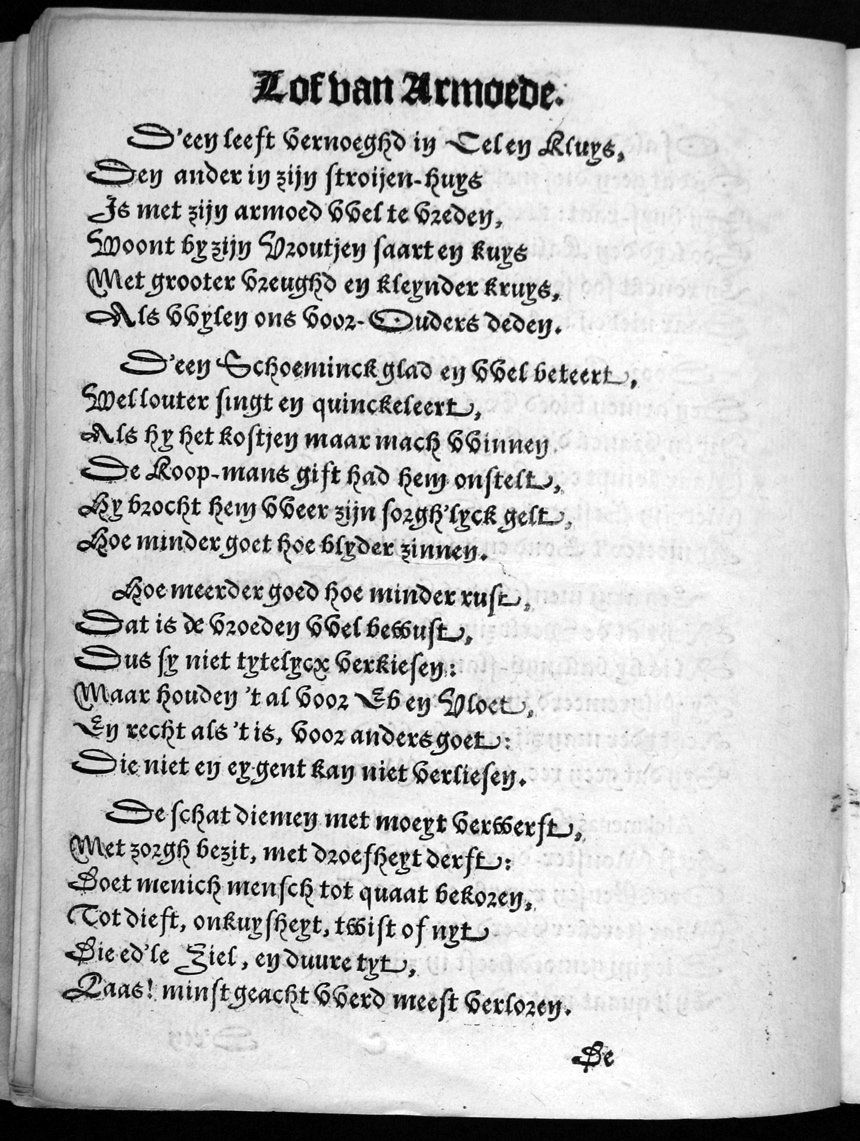 Lof van Armoede.
D'een leeft vernoeghd in Cel en Kluys,
Den ander in zijn stroijen-huys
Is met zijn armoed vvel te vreden,
Woont by zijn Vroutjen saart en kuys
Met grooter vreughd en kleynder kruys,
Als vvylen ons voor-Ouders deden.
D'een Schoeminck glad en vvel beteert,
Wel louter singt en quinckeleert,
Als hy het kostjen maar mach vvinnen.
De Koop-mans gift had hem onstelt,
Hy brocht hem vveer zijn sorgh'lyck gelt,
Hoe minder goet hoe blyder zinnen.
Hoe meerder goed hoe minder rust,
Dat is de vroeden vvel bewust,
Dus sy niet tytelycx verkiesen:
Maar houden 't al voor Eb en Vloet,
En recht als 't is, voor anders goet:
Die niet en eygent kan niet verliesen.
De schat diemen met moeyt verwerft,
Met zorgh bezit, met droefheyt derft:
Doet menich mensch tot quaat bekoren,
Tot dieft, onkuysheyt, twist of nyt
Die ed'le Ziel, en duure tyt,
Laas! minst geacht vverd meest verloren.
De